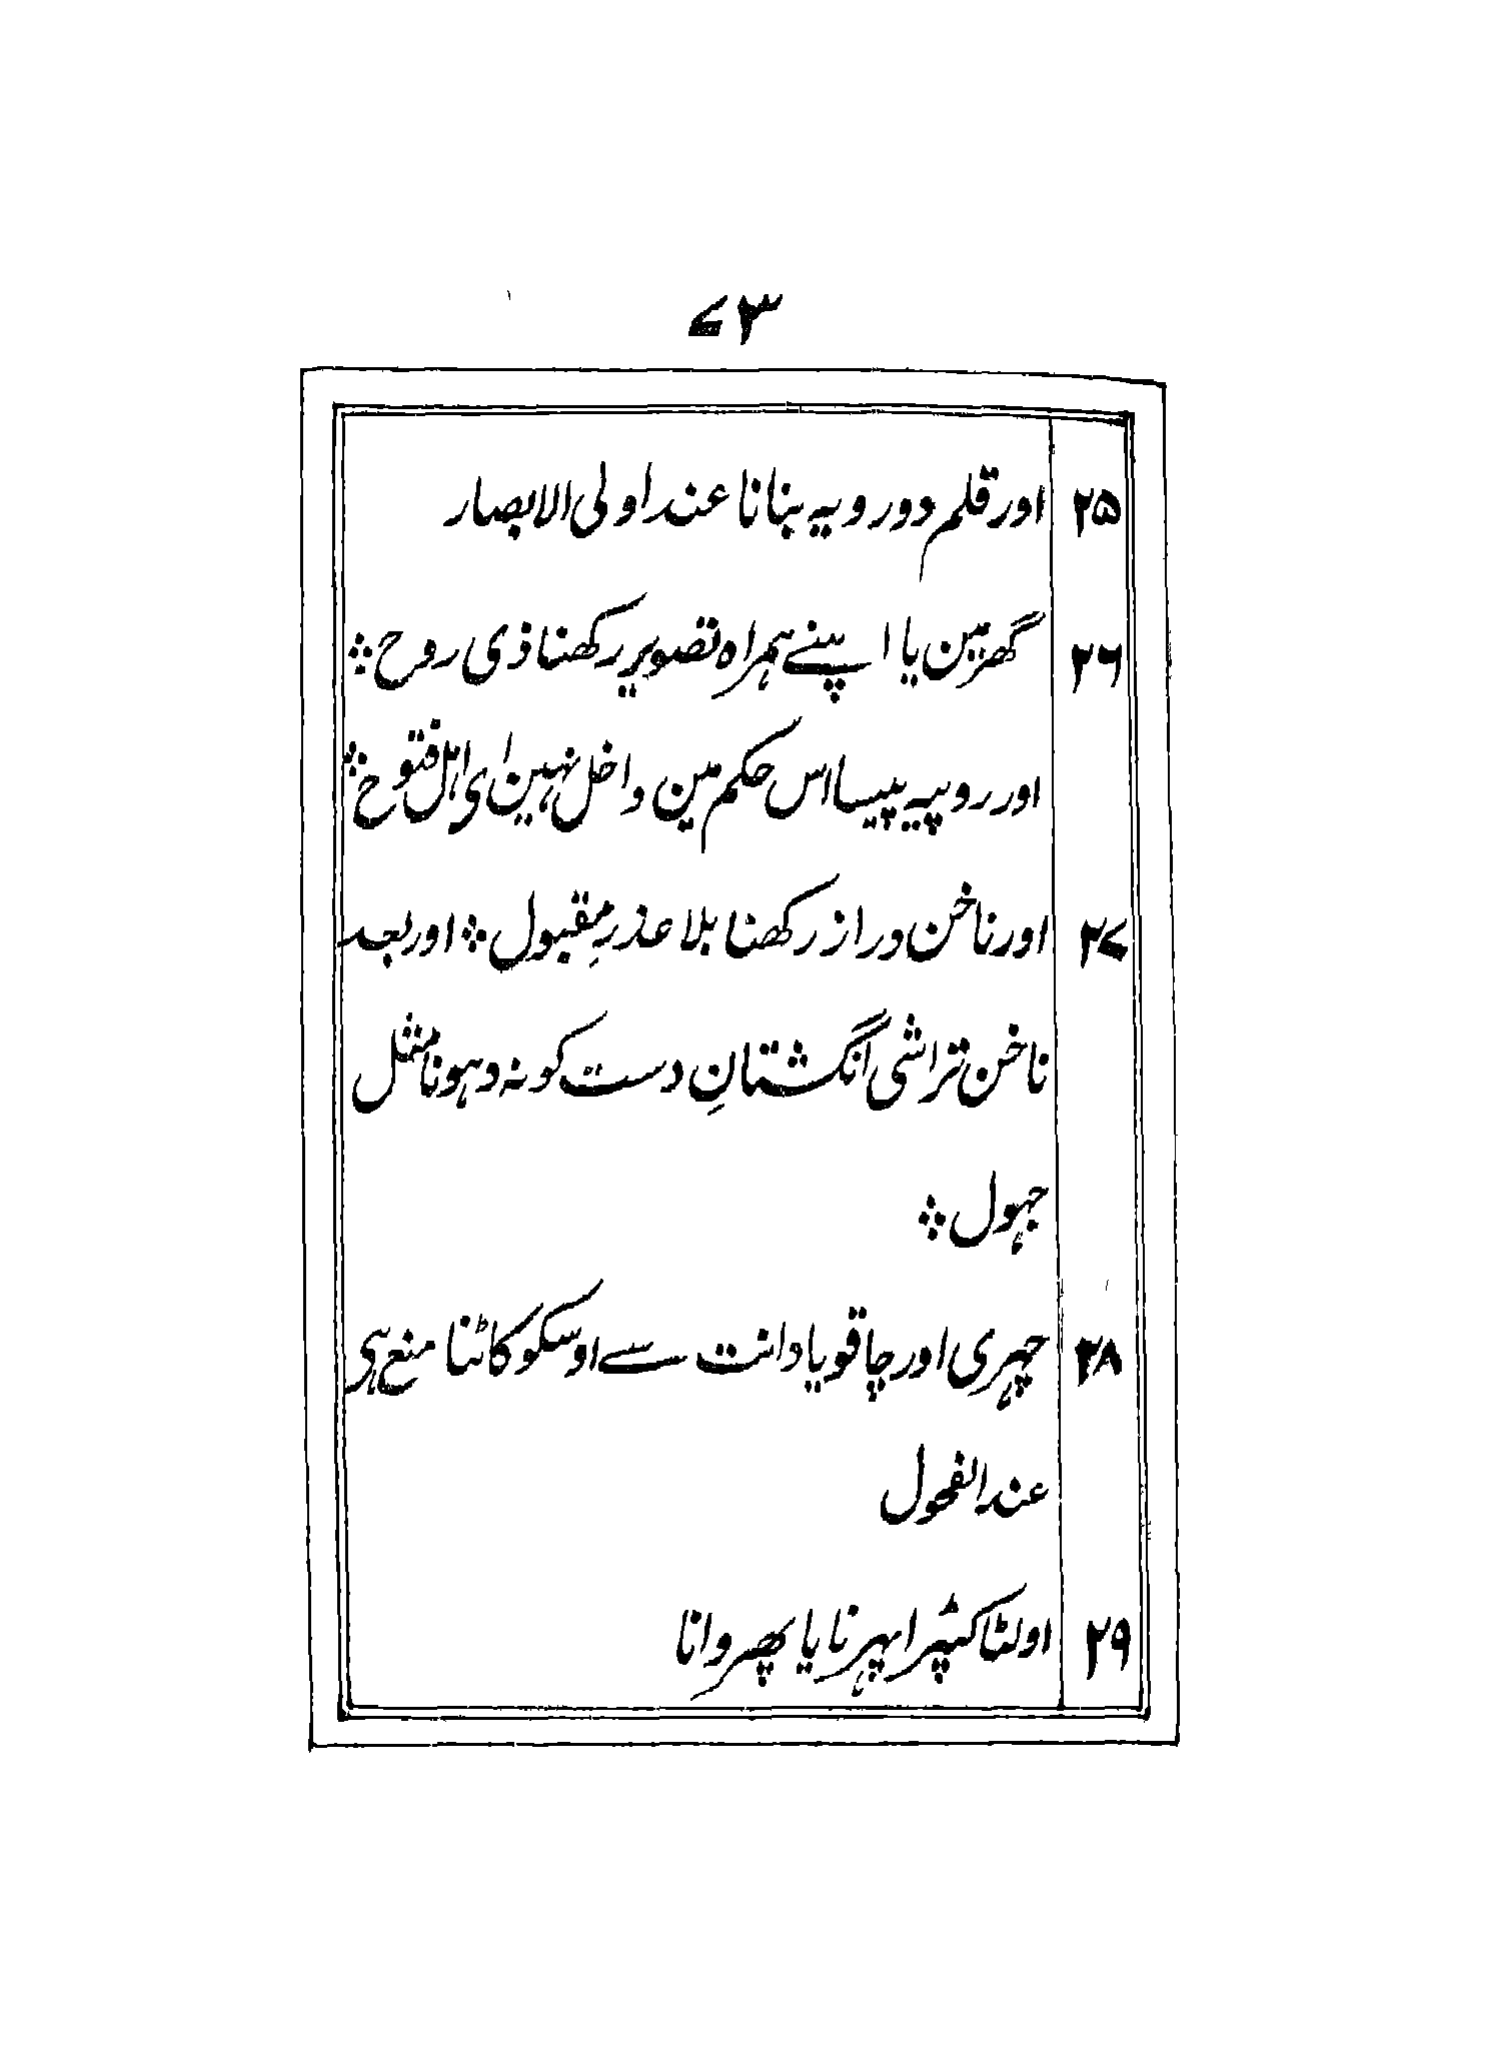 ۷۳
۲۵ اور قلم دو رویہ بنانا عند اولی الابصار
۲۶ گھر مین یا اپنے ہمراہ تصویر رکھنا ذی روح ؞
اور روپیہ پیسا اس حکم مین داخل نہین ای اہل فتوح ؞
۲۷ اور ناخن دراز رکھنا بلا عذرِ مقبول ؞ اور بعد
ناخن تراشی انگشتانِ دست کو نہ دہونا مثل
جہول ؞
۲۸ چہری اور چاقو یا دانت سے اوسکو کاٹنا منع ہی
عند الفحول
۲۹ اولٹا کپڑا پہرنا یا پھروانا